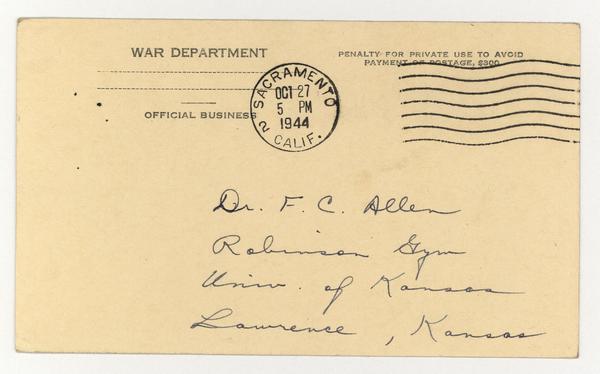 WAR DEPARTMENT
OFFICIAL BUSINESS
PENALTY FOR PRIVATE USE TO AVOID
PAYMENT OF POSTAGE, $300
SACRAMENTO
OCT 27
5 PM
1944
2 CALIF.
Dr. F. C. Allen
Robinson Gym
Univ. of Kansas
Lawrence, Kansas